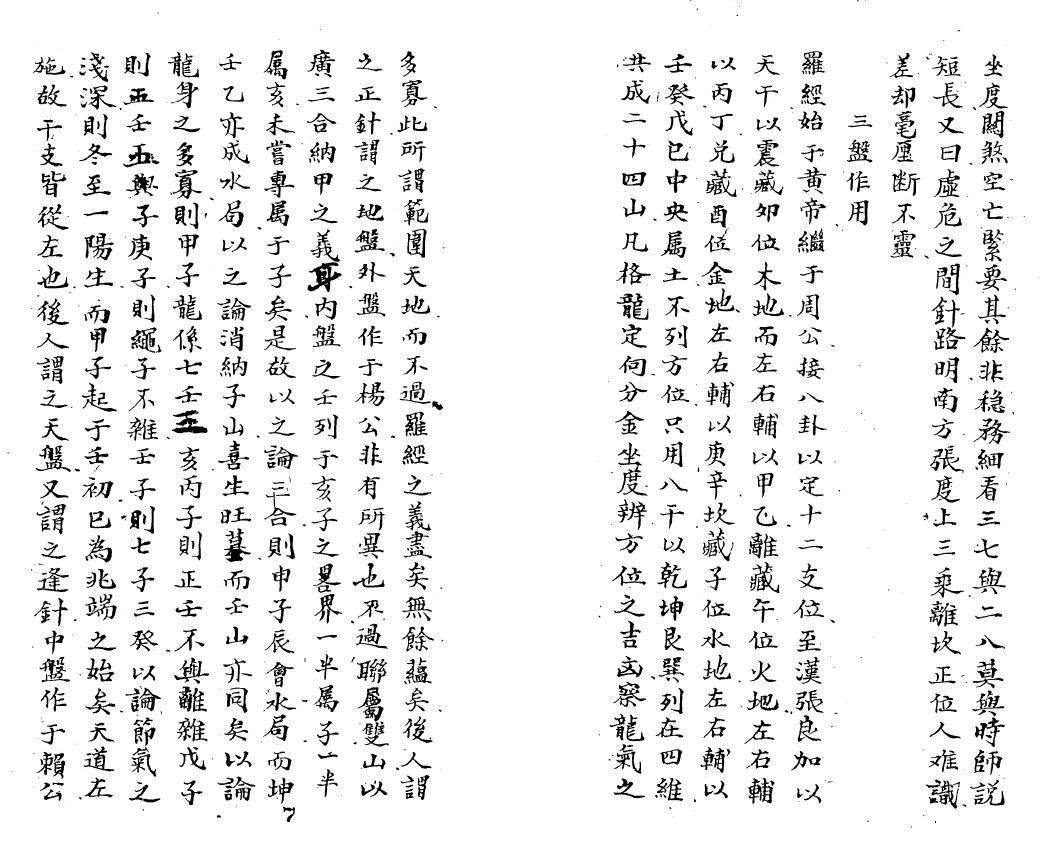 坐度關煞空亡緊要其餘非稳務細看三七與二八莫與時師説
短長又曰虛危之間針路明南方張度上三乘離坎正位人难識
差却毫厘断不靈
三盤作用
羅經始于黄帝繼于周公接八卦以定十二支位至漢張良加以
天干以震藏卯位木地而左右輔以甲乙離藏午位火地左右輔
以丙丁兑藏酉位金地左右輔以庚辛坎藏子位水地左右輔以
壬癸戊巳中央属土不列方位只用八干以乾坤艮巽列在四維
共成二十四山凡格龍定向分金坐度辨方位之吉凶察龍氣之
多寡此所謂範圍天地而不過羅經之義盡矣無餘蕴矣後人謂
之正針謂之地盤外盤作于楊公非有所異也不過聯屬雙山以
廣三合納甲之義耳内盤之壬列于亥子之畧界一半属子一半
属亥未嘗專属于子矣是故以之論三合則申子辰會水局而坤
壬乙亦成水局以之論消納子山喜生旺墓而壬山亦同矣以論
龍身之多寡則甲子龍係七壬三亥丙子則正壬不與離雜戊子
則五壬五與子庚子則繩子不雜壬子則七子三癸以論節氣之
淺深則冬至一陽生而甲子起于壬初已為兆端之始矣天道左
施故干支皆從左也後人謂之天盤又謂之逢針中盤作于賴公
7